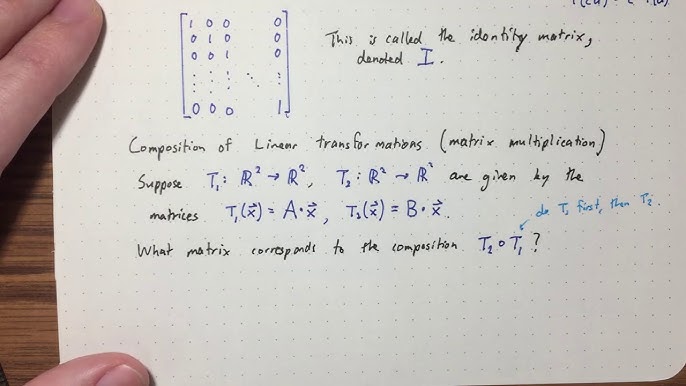 T(cū) = c T(ū)
1 0 0 0
0 1 0 0
0 0 1 0
⋮ ⋮ ⋮ ⋱ ⋮
0 0 0 1
This is called the identity matrix,
denoted I.
Composition of Linear transformations (matrix multiplication)
Suppose T₁: ℝ² → ℝ², T₂: ℝ² → ℝ² are given by the
matrices T₁(x⃗) = A·x⃗, T₂(x⃗) = B·x⃗.
do T₁ first, then T₂.
What matrix corresponds to the composition T₂∘T₁?